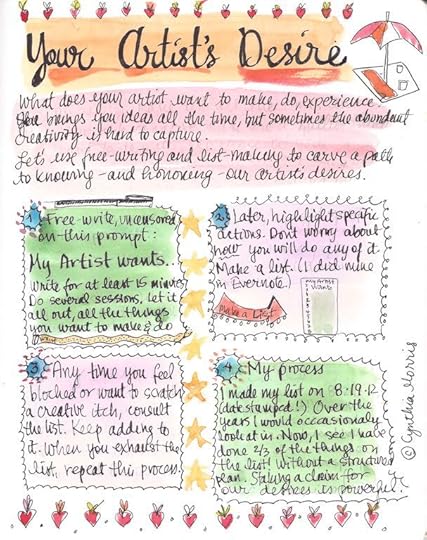 Your Artist's Desire
What does your artist want to make, do, experience?
She brings you ideas all the time, but sometimes the abundant
creativity is hard to capture.
Let's use free-writing and list-making to carve a path
to knowing - and honoring - our artist's desires.
1 Free-write, uncensored
on this prompt:
My Artist wants...
Write for at least 15 minutes
Do several sessions, let it
all out, all the things
you want to make & do
2 Later, highlight specific
actions. Don't worry about
how you will do any of it.
Make a list. (I did mine
in Evernote.)
Make a List
My Artist
Wants
3 Any time you feel
blocked or want to scratch
a creative itch, consult
the list. Keep adding to
it. When you exhaust the
list, repeat this process.
4 My process
I made my list on 8-19-12
(date stamped!) Over the
years I would occasionally
look at it. Now, I see I have
done 2/3 of the things on
the list! Without a structured
plan. Staking a claim for
our desires is powerful!
© Cynthia Morris